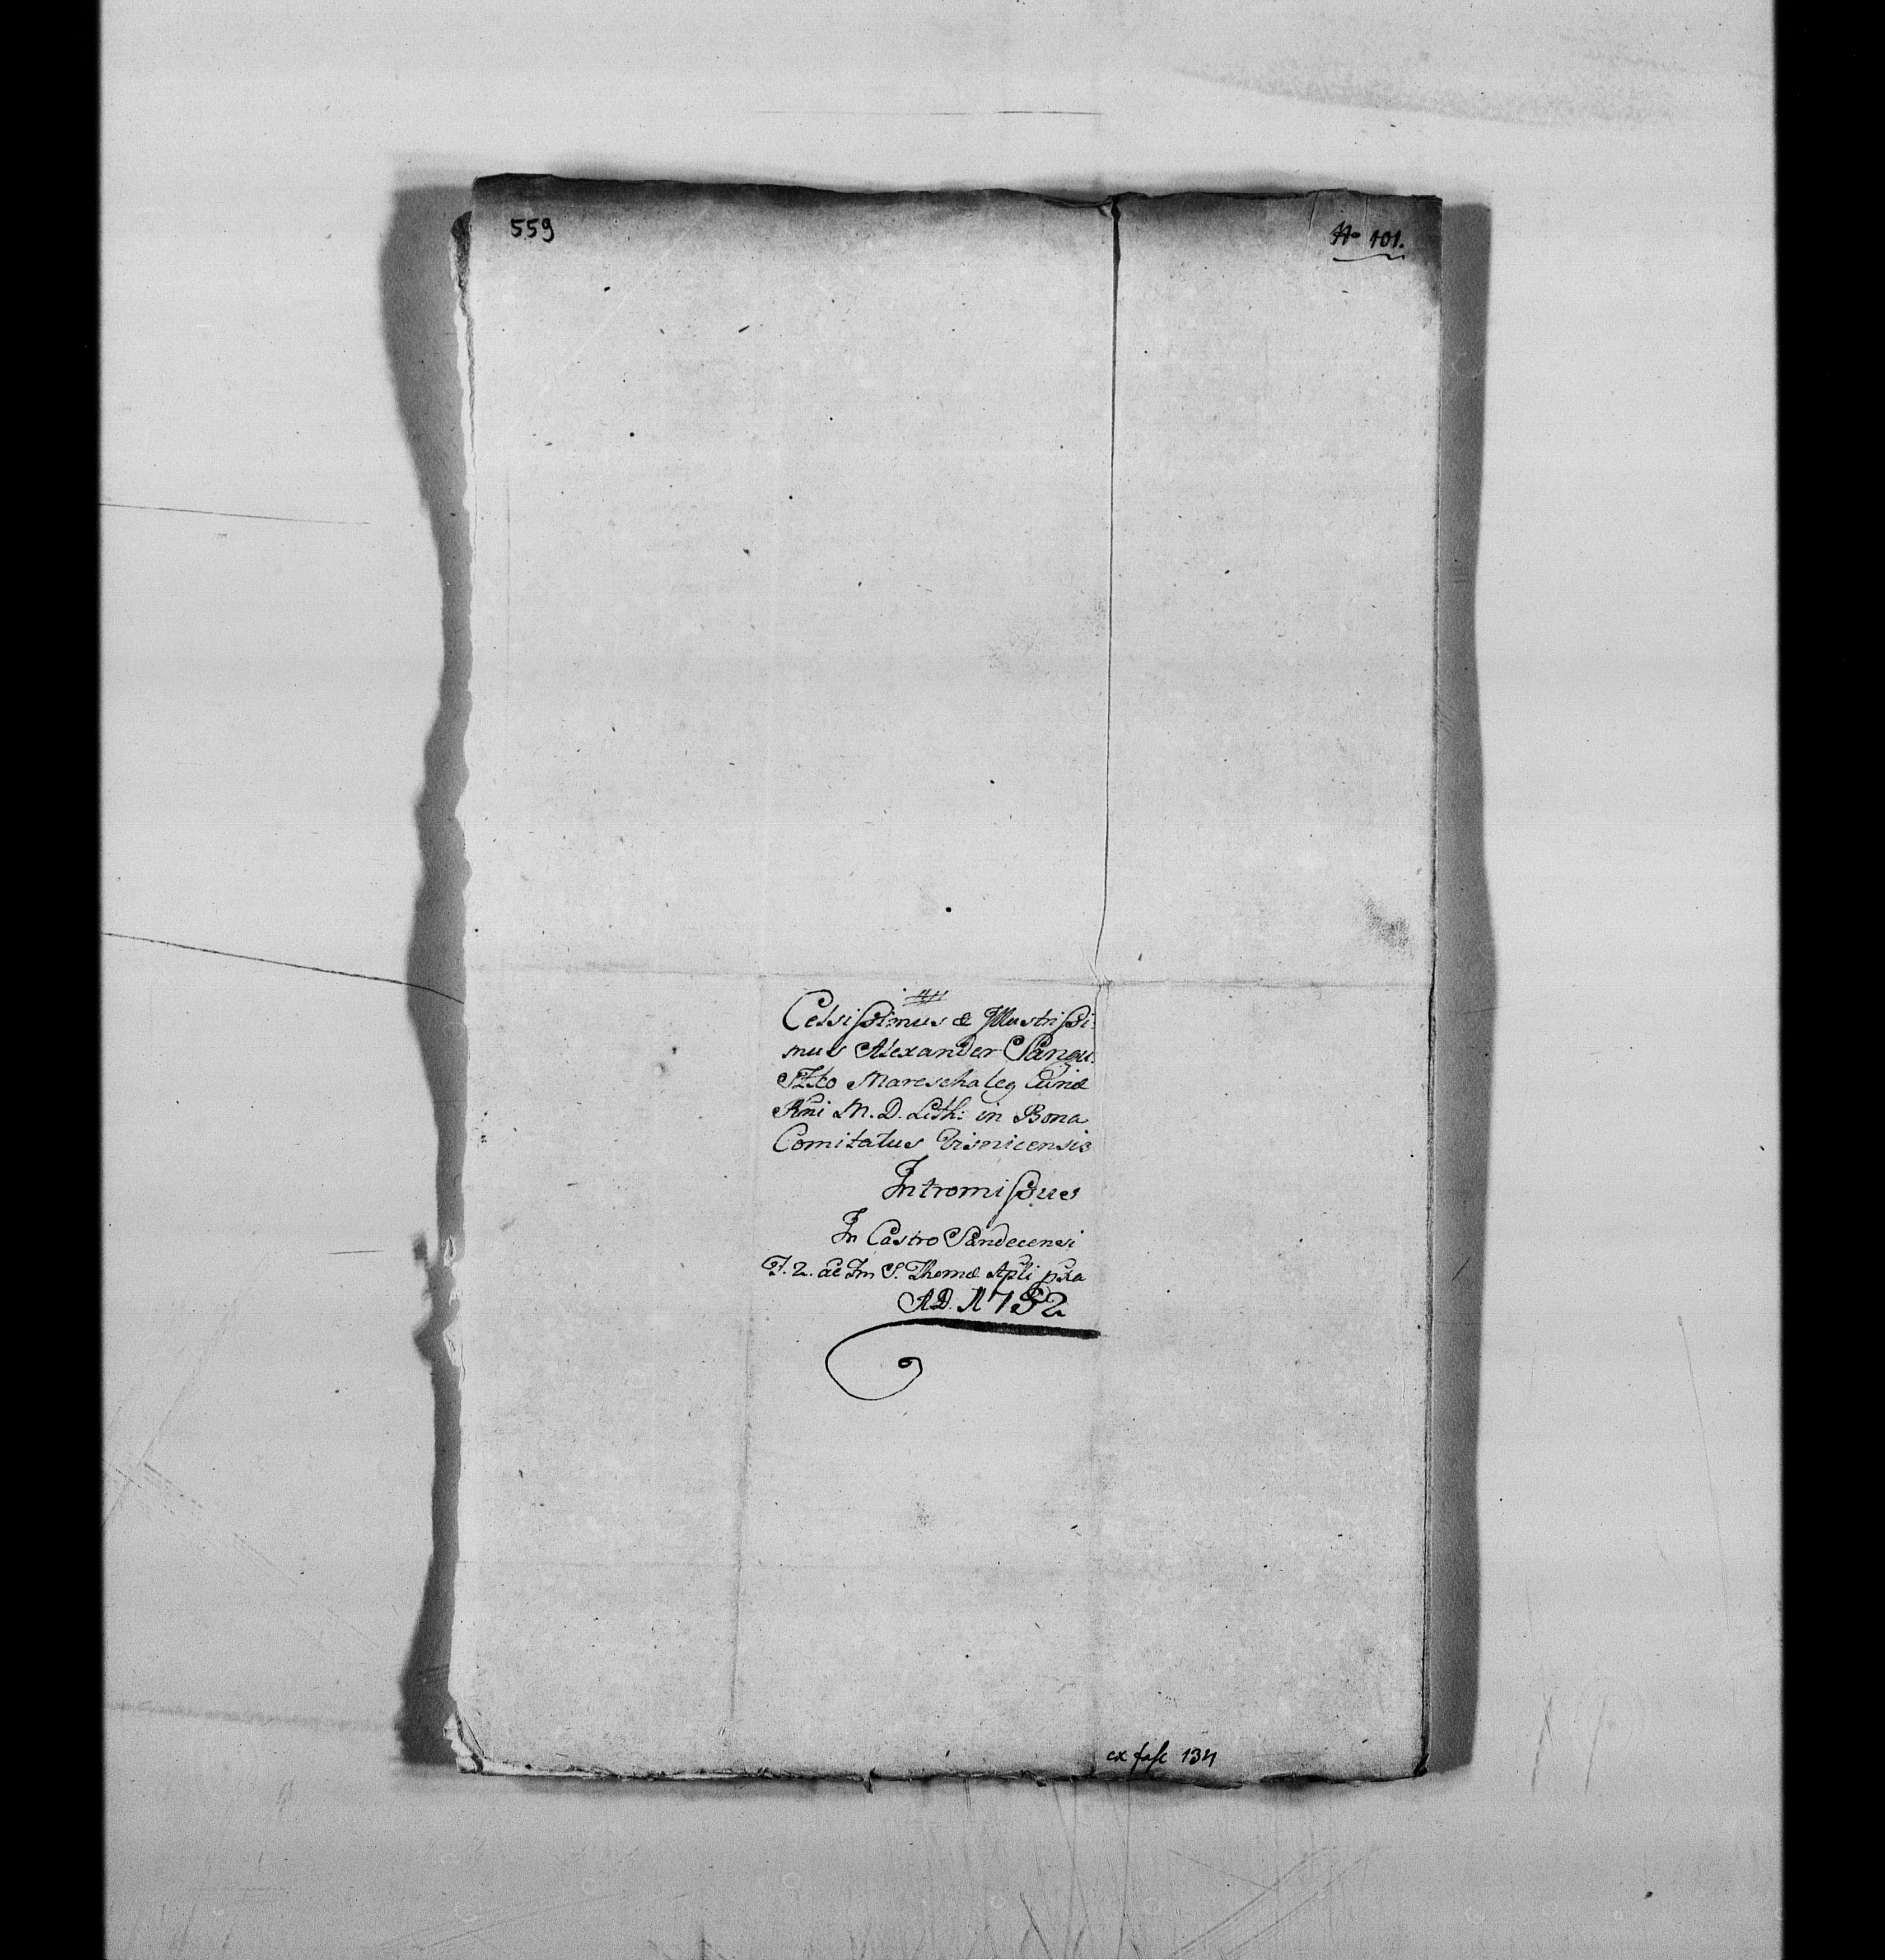 559
No 101.
Celsissimus & Illustrissi-
mus Alexander Sangu-
szko Mareschaleg Curiæ
Rñi M. D. Lith: in Bona
Comitatus Visnicensis
Intromissus
In Castro Sandecensi
F. 2. ãe Fm S. Thomæ Apli pxa
A.D. 1752
ex fasc 134